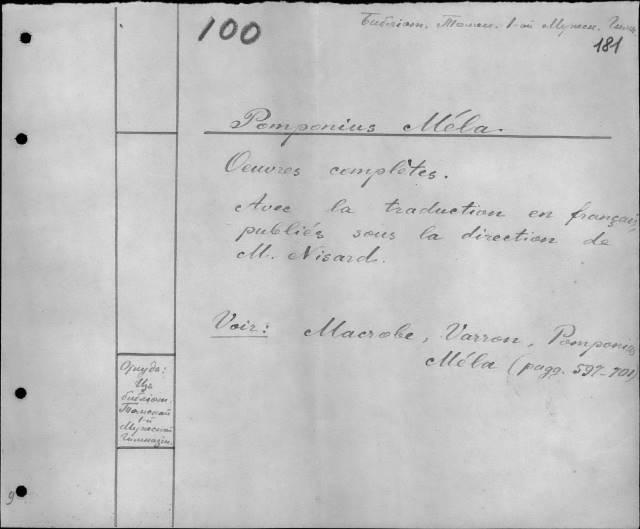 100
Библiот. Томск. 1-ой Мужск. Гимн.
181
Pomponius Méla.
Oeuvres complètes.
Avec la traduction en français,
publiés sous la direction de
M. Nisard.
Voir: Macrobe, Varron, Pomponius
Méla (pagg. 597-701)
Откуда:
Изъ
библiот.
Томской
1-й
Мужской
Гимназiи.
9